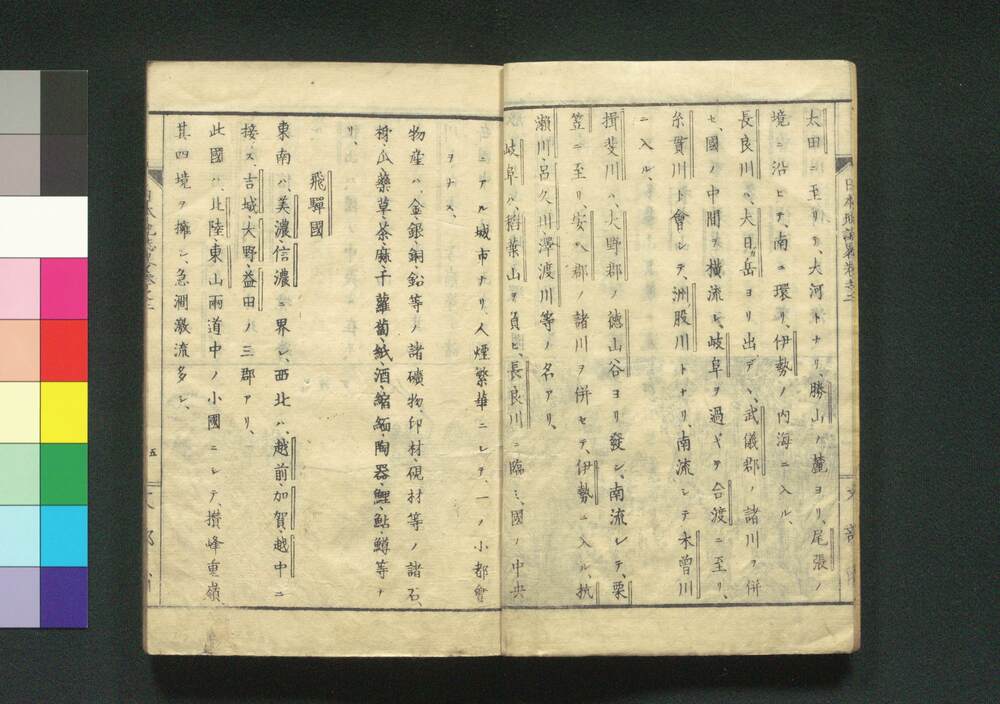 太田ニ至リテ、大河トナリ、勝山ノ麓ヨリ、尾張ノ
境ニ沿ヒテ、南ニ環リ、伊勢ノ内海ニ入ル、
長良川ハ、大日岳ヨリ出デ、武儀郡ノ諸川ヲ併
セ、國ノ中間ヲ横流シ、岐阜ヲ過ギテ、合渡ニ至リ、
糸貫川ト會シテ、洲股川トナリ、南流シテ木曽川
ニ入ル、
揖斐川ハ、大野郡ノ徳山谷ヨリ發シ、南流シテ、栗
笠ニ至リ、安八郡ノ諸川ヲ併セテ、伊勢ニ入ル、杭
瀬川、呂久川、澤渡川等ノ名アリ、
岐阜ハ、稻葉山ヲ負ヒ、長良川ニ臨ミ、國ノ中央
ニアル城市ナリ、人煙繁華ニシテ、一ノ小都會
ヲナス、
物產ハ、金、銀、銅、鉛等ノ諸礦物、印材、硯材等ノ諸石、
柹、瓜、藥草、茶、麻、干蘿蔔、紙、酒、縮緬、陶器、鯉、鮎、鱒等ナ
リ、
飛驒國
東南ハ、美濃、信濃ニ界シ、西北ハ、越前、加賀、越中ニ
接ス、吉城、大野、益田ノ三郡アリ、
此國ハ、北陸、東山兩道中ノ小國ニシテ、攅峰重嶺、
其四境ヲ擁シ、急澗激流多シ、
五